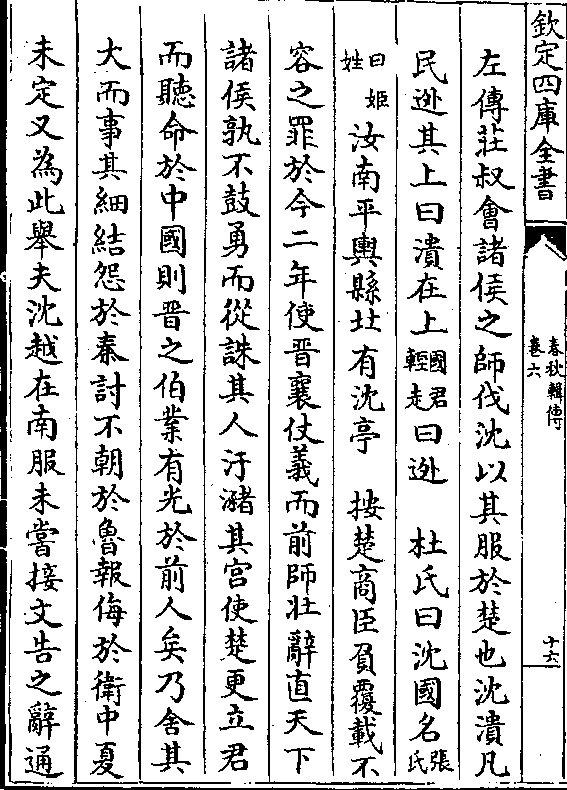 欽定四庫全書
春秋輯傳
卷六
十六
左傳莊叔會諸侯之師伐沈以其服於楚也沈潰凡
民逃其上曰潰在上國君輕走曰逃　杜氏曰沈國名張氏
曰姬姓　汝南平輿縣北有沈亭　按楚商臣負覆載不
容之罪於今二年使晉襄仗義而前師壯辭直天下
諸侯孰不鼓勇而從誅其人汙瀦其宮使楚更立君
而聽命於中國則晉之伯業有光於前人矣乃舍其
大而事其細結怨於秦討不朝於魯報侮於衛中夏
未定又為此舉夫沈越在南服未嘗接文告之辭通